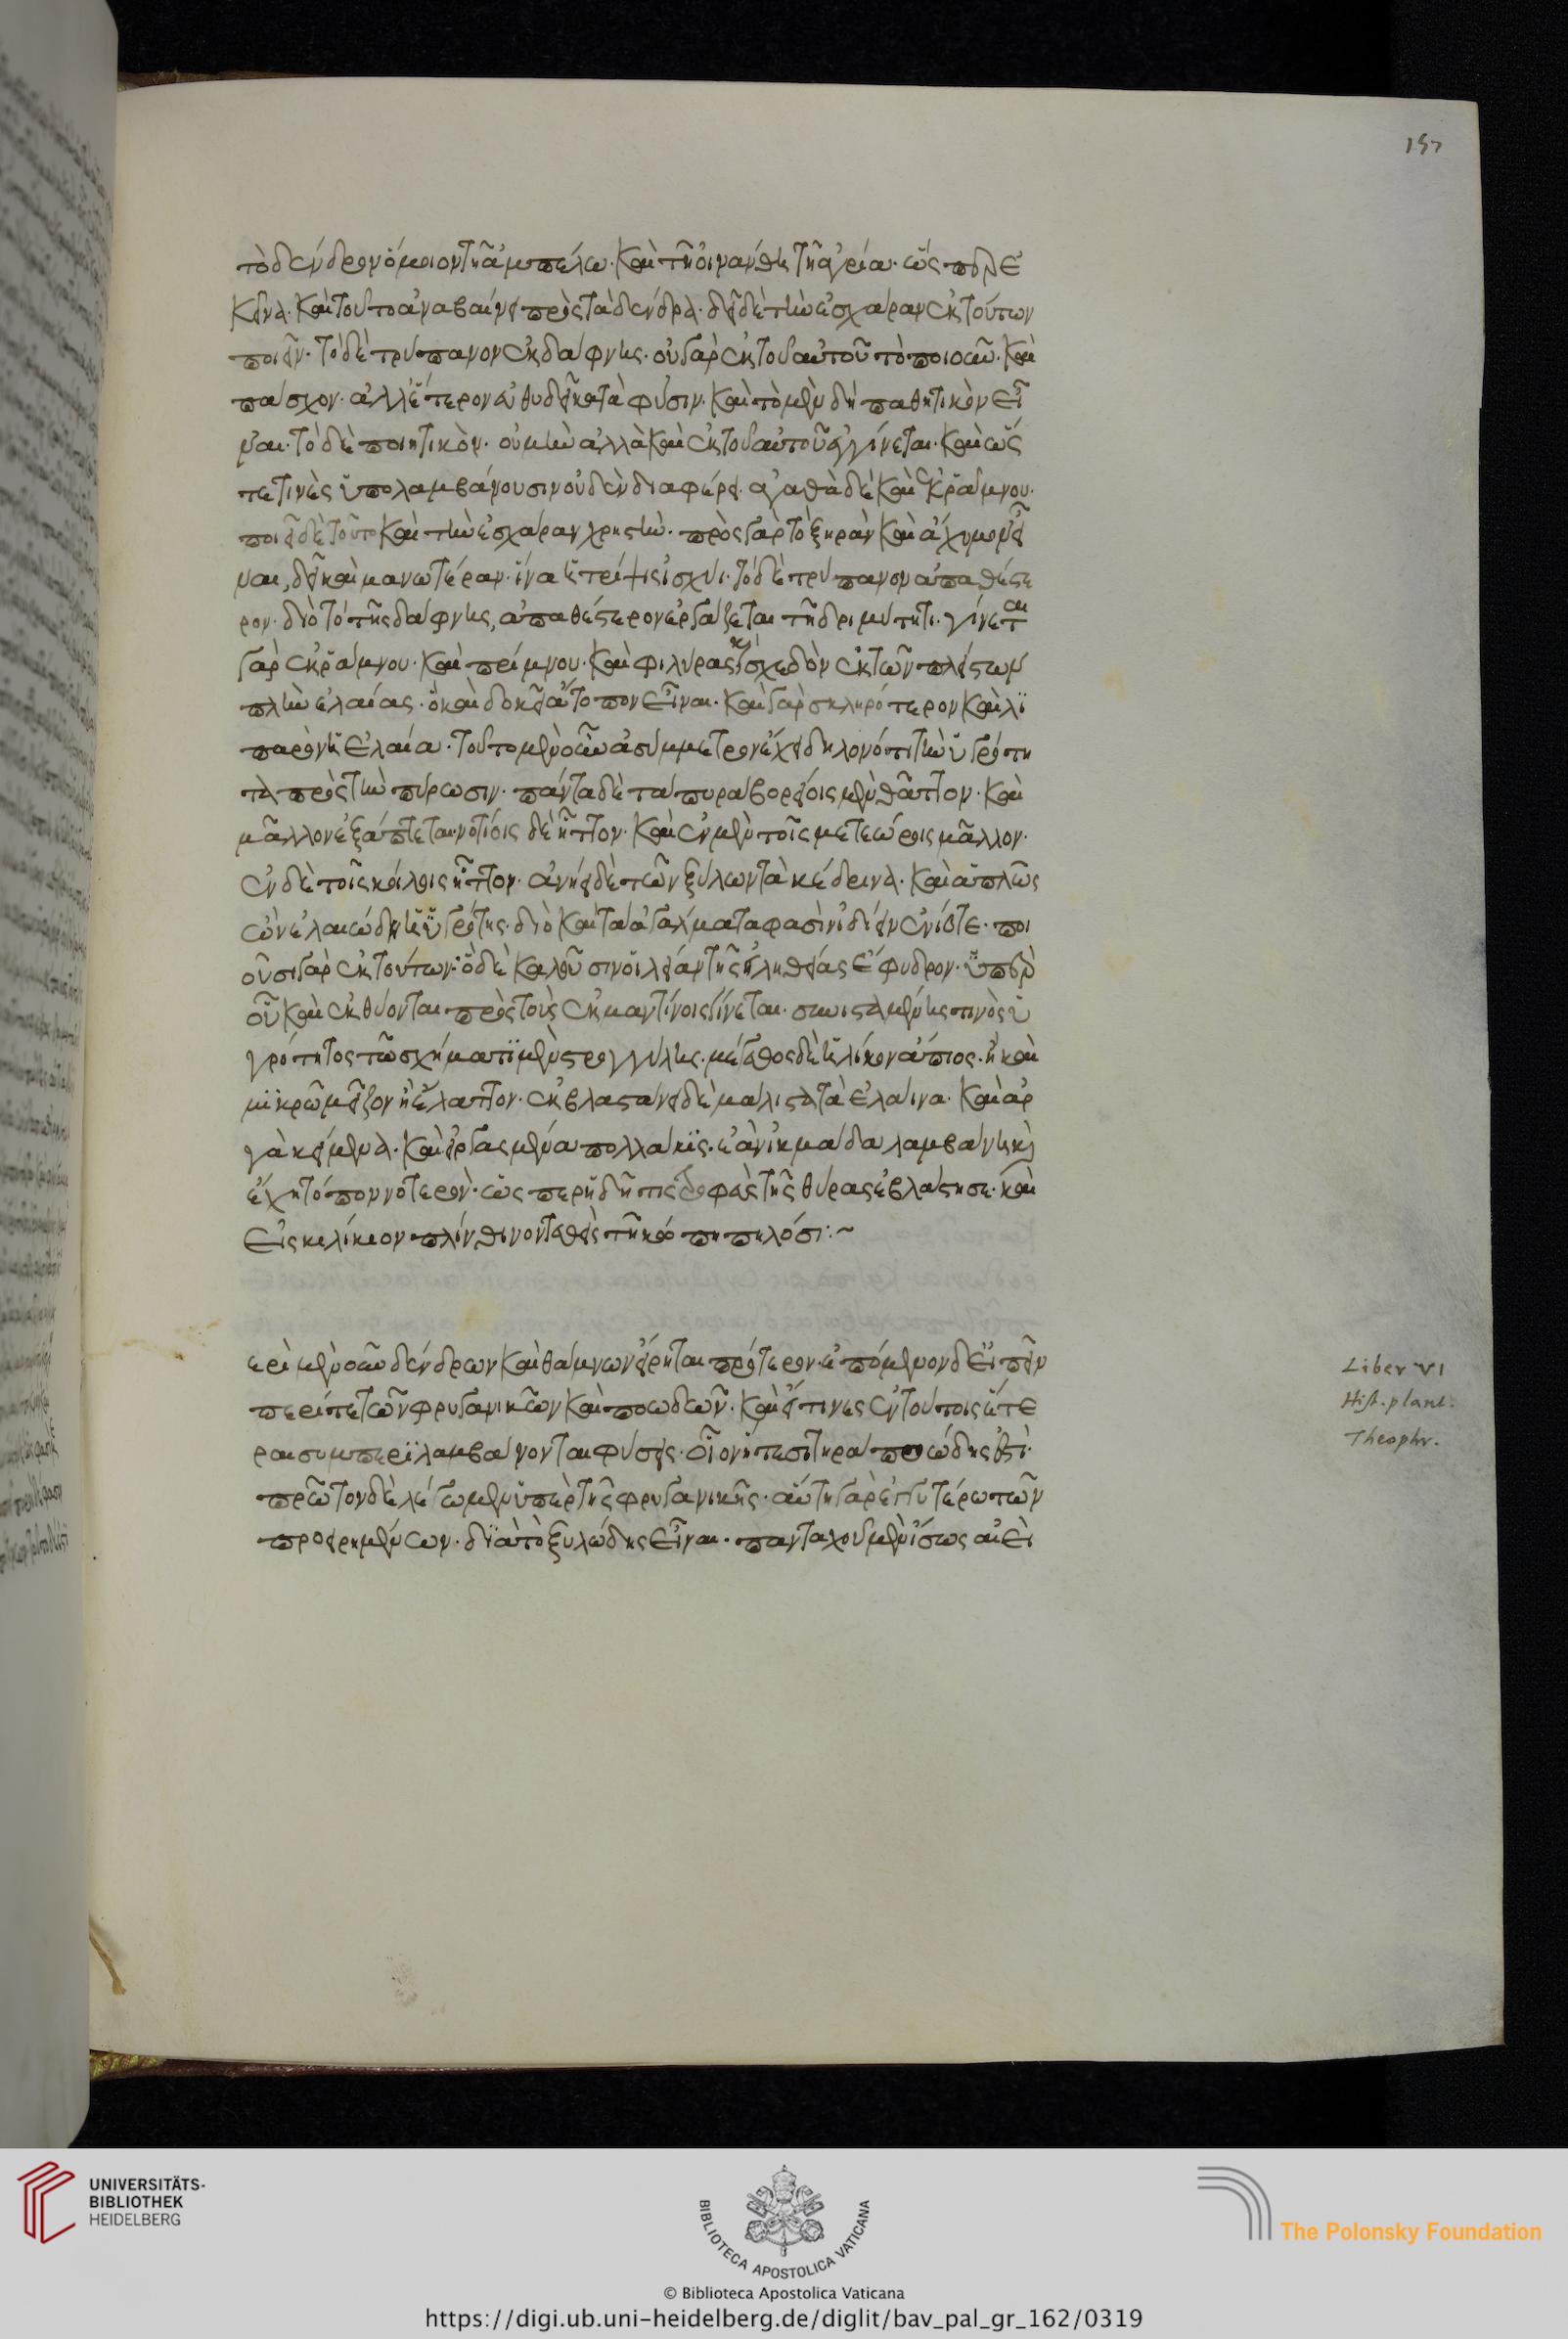 157
τὸ δένδρον ὅμοιον τῆ ἀμπέλω. καὶ τῆ οἰνάνθη τῆ ἀγρία. ὥσπερ ἐ
κεῖνα. καὶ τοῦτο ἀναβαίνει πρὸς τὰ δένδρα. δεῖ δὲ τὴν ἐσχάραν ἐκ τούτων
ποιεῖν. τὸ δὲ τρύπανον ἐκ δάφνης. οὐ γὰρ ἐκ τοῦ αὐτοῦ τὸ ποιοῦν. καὶ
πάσχον. ἀλλ' ἕτερον εὐθὺ δεῖ κατὰ φύσιν. καὶ τὸ μὲν δὴ παθητικὸν εἶ
ναι. τὸ δὲ ποιητικὸν. οὐ μὴν ἀλλὰ καὶ ἐκ τοῦ αὐτοῦ ἐγγίνεται. καὶ ὥς
γέ τινὲς ὑπολαμβάνουσιν οὐδὲν διαφέρει. ἀγαθὰ δὲ καὶ ἐκ ῥάμνου.
ποιεῖ δὲ τοῦτο καὶ τὴν ἐσχάραν χρηστὴν. πρὸς γὰρ τὸ ξηρὰν καὶ ἄχυμον εἶ
ναι, δεῖ καὶ μανωτέραν. ἵνα ἡ τρίψις ἰσχύι. τὸ δὲ τρύπανον ἀπαθέστε
ρον. διὸ τὸ τῆς δάφνης, ἀπαθέστερον ἐργάζεται τῆ δριμύτητι. γίνεται
γὰρ ἐκ ῥάμνου. καὶ πρίμνου. καὶ φιλύρας καὶ σχεδὸν ἐκ τῶν πλείστων
πλὴν ἐλαίας. ὃ καὶ δοκεῖ ἄτοπον εἶναι. καὶ γὰρ σκληρότερον καὶ λι
παρὸν ἡ ἐλαία. τοῦτο μὲν οὖν ἀσύμμετρον ἔχει δηλονότι τὴν ὑγρότη
τα πρὸς τὴν πύρωσιν. πάντα δὲ τὰ πυρὰ βορείοις μὲν θᾶττον. καὶ
μᾶλλον ἐξάπτεται. νοτίοις δὲ ἧττον. καὶ ἐν μὲν τοῖς μετεώροις μᾶλλον.
ἐν δὲ τοῖς κοίλοις ἧττον. ἀνίει δὲ τῶν ξύλων τὰ κέδρινα. καὶ ἁπλῶς
ὧν ἐλαιώδη ἡ ὑγρότης. διὸ καὶ τὰ ἀγάλματα φασὶν ἰδίειν ἐνίοτε. ποι
οῦσι γὰρ ἐκ τούτων. ὃ δὲ καλοῦσιν οἱ
οὗ καὶ ἐκθύονται πρὸς τοὺς ἐκ μαντίνοις γίνεται. συνισταμένης τινὸς ὑ
γρότητος τῶ σχήματι μὲν στρογγύλης. μέγεθος δὲ ἡλίκον ἄπιος. ἢ καὶ
μικρῶ μεῖζον ἢ ἔλαττον. ἐκβλαστάνει δὲ μάλιστα τὰ ἐλάινα. καὶ ἀρ
γὰ κείμενα. καὶ ἐργασμένα πολλάκις. ἐὰν ἰκμάδα λαμβάνη καὶ
ἔχη τόπον νοτερὸν. ὥσπερ ἤδη τις στροφεὺς τῆς θύρας ἐβλάστησε. καὶ
εἰς κυλίκιον πλίνθινον τεθεὶς τῆ κόπη πηλόσι :~
ερὶ μὲν οὖν δένδρων καὶ θάμνων εἴρηται πρότερον. ἑπόμενον δ' εἰπεῖν
περί τε τῶν φρυγανικῶν καὶ ποωδῶν. καὶ εἴ τινες ἐν τούτοις ἕτε
ραι συμπεριλαμβάνονται φύσεις. οἷον ἥ τε σιτηρὰ ποώδης ἐστὶ.
πρῶτον δὲ λέγωμεν ὑπὲρ τῆς φρυγανικῆς. αὕτη γὰρ ἐγγυτέρω τῶν
προειρημένων. διὰ τὸ ξυλώδης εἶναι. πανταχοῦ μὲν ἴσως αἰεὶ
Liber VI
Hist. plant.
Theophr.
UNIVERSITÄTS-
BIBLIOTHEK
HEIDELBERG
BIBLIOTECA APOSTOLICA VATICANA
The Polonsky Foundation
© Biblioteca Apostolica Vaticana
https://digi.ub.uni-heidelberg.de/diglit/bav_pal_gr_162/0319